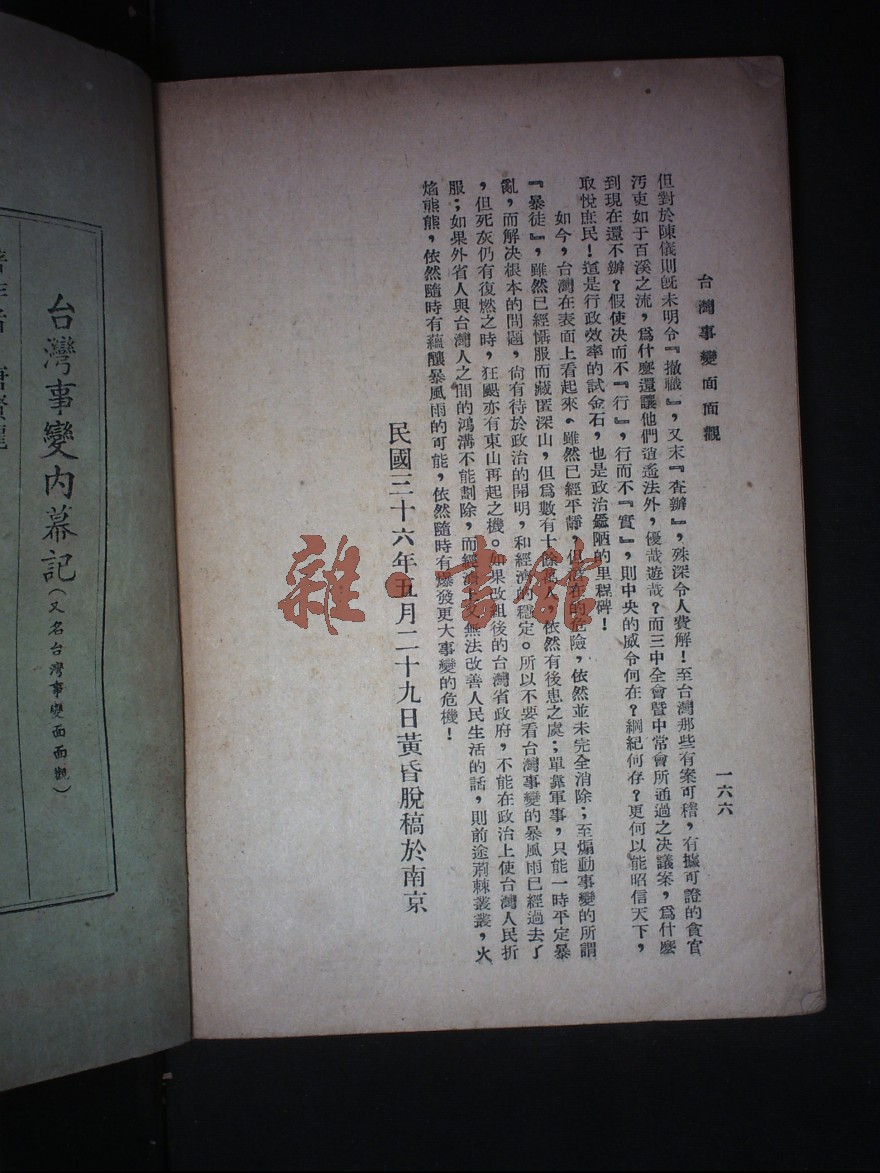 台灣事變面面觀
一六六
但對於陳儀則旣未明令『撤職』，又未『查辦』，殊深令人費解！至台灣那些有案可稽，有據可證的貪官
汚吏如于百溪之流，爲什麼還讓他們逍遙法外，優哉遊哉？而三中全會暨中常會所通過之決議案，爲什麼
到現在還不辦？假使決而不『行』，行而不『實』，則中央的威令何在？綱紀何存？更何以能昭信天下，
取悅庶民！這是行政效率的試金石，也是政治醜陋的里程碑！
如今，台灣在表面上看起來，雖然已經平靜，但潛在的危險，依然並未完全消除；至煽動事變的所謂
『暴徒』，雖然已經懾服而藏匿深山，但爲數有十餘萬人，依然有後患之處；單靠軍事，只能一時平定暴
亂，而解决根本的問題，尙有待於政治的開明，和經濟的穩定。所以不要看台灣事變的暴風雨已經過去了
，但死灰仍有復燃之時，狂颷亦有東山再起之機。如果改組後的台灣省政府，不能在政治上使台灣人民折
服；如果外省人與台灣人之間的鴻溝不能剷除，而經濟上又無法改善人民生活的話，則前途荊棘叢叢，火
焰熊熊，依然隨時有蘊釀暴風雨的可能，依然隨時有爆發更大事變的危機！
民國三十六年五月二十九日黃昏脫稿於南京
台灣事變內幕記（又名台灣事變面面觀）
著作者 唐賢龍
雜·書館